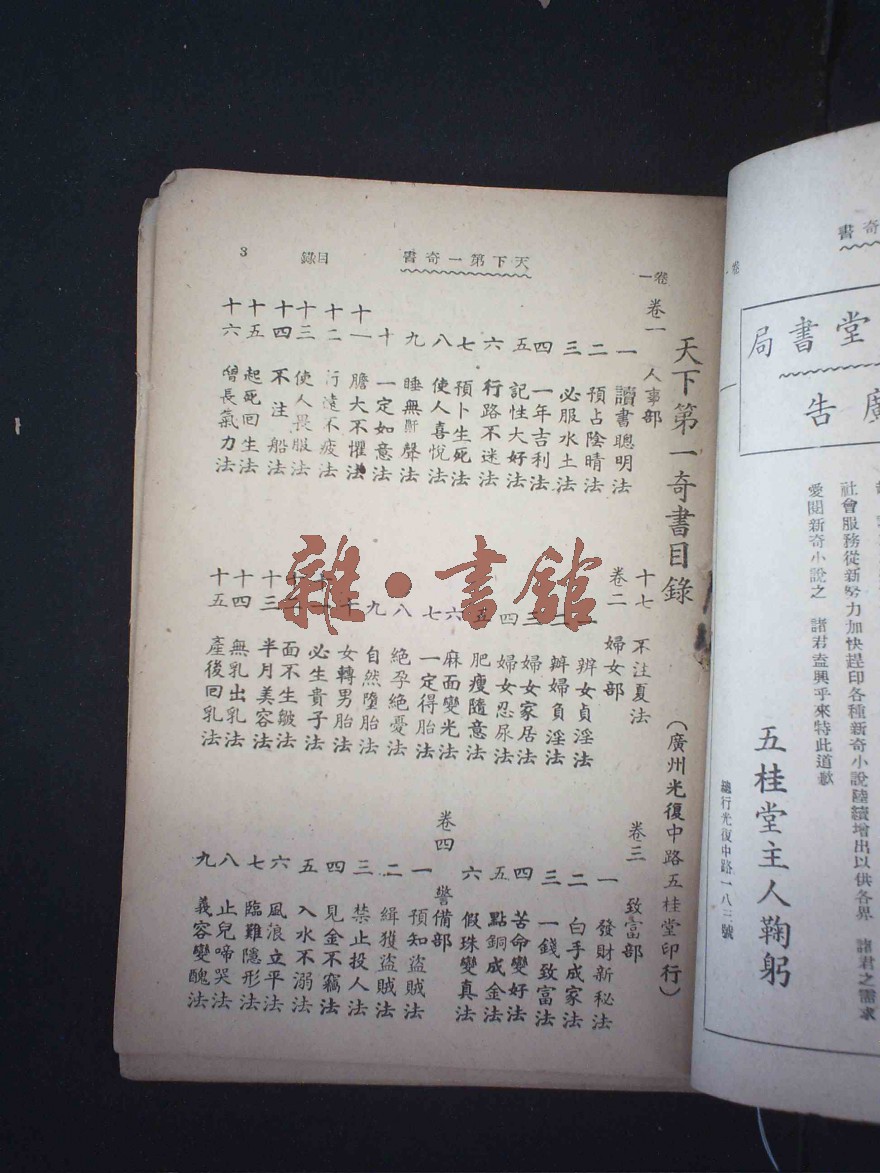 天下第一奇書 目錄 3
卷一
天下第一奇書目錄 (廣州光復中路五桂堂印行)
卷一 人事部
一 讀書聰明法
二 預占陰晴法
三 必服水土法
四 一年吉利法
五 記性大好法
六 行路不迷法
七 預卜生死法
八 使人喜悅法
九 睡無鼾聲法
十 一定如意法
十一 膽大不懼法
十二 行遠不疲法
十三 使人畏服法
十四 不注船法
十五 起死回生法
十六 曾長氣力法
十七 不注夏法
卷二 婦女部
一 辨女貞淫法
二 辨婦負淫法
三 婦女家居法
四 婦女忍尿法
五 肥瘦隨意法
六 麻面變光法
七 一定得胎法
八 絕孕絕憂法
九 自然墮胎法
十 女轉男胎法
必生貴子法
面不生皺法
十三 半月美容法
十四 無乳出乳法
十五 產後回乳法
卷三 致富部
一 發財新秘法
二 白手成家法
三 一錢致富法
四 苦命變好法
五 點銅成金法
六 假珠變真法
卷四 警備部
一 預知盜賊法
二 緝獲盜賊法
三 禁止投人法
四 見金不竊法
五 入水不溺法
六 風浪立平法
七 臨難隱形法
八 止兒啼哭法
九 義容變醜法
雜·書館
奇書
卷
堂書局
廣告
社會服務從新努力加快趕印各種新奇小說陸續增出以供各界 諸君之需求
愛閱新奇小說之 諸君盍興乎來特此道歉
五桂堂主人鞠躬
總行光復中路一八三號